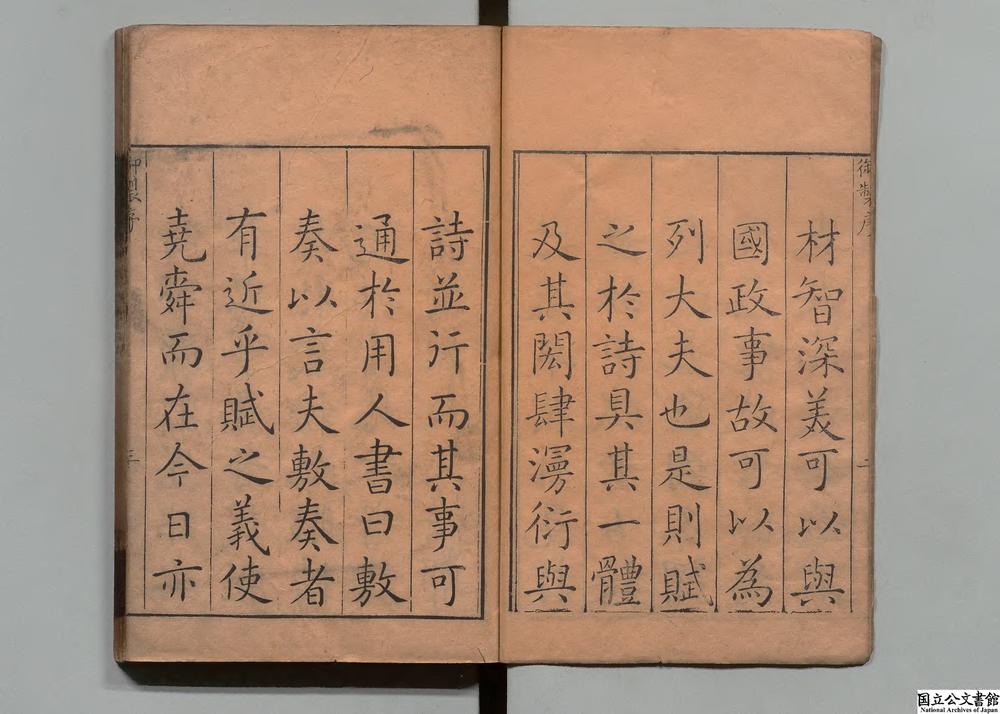 御製序
材智深美可以與
國政事故可以為
列大夫也是則賦
之於詩具其一體
及其閎肆漫衍與
詩並行而其事可
通於用人書曰敷
奏以言夫敷奏者
有近乎賦之義使
堯舜而在今日亦
御製序
三
国立公文書館
National Archives of Japan